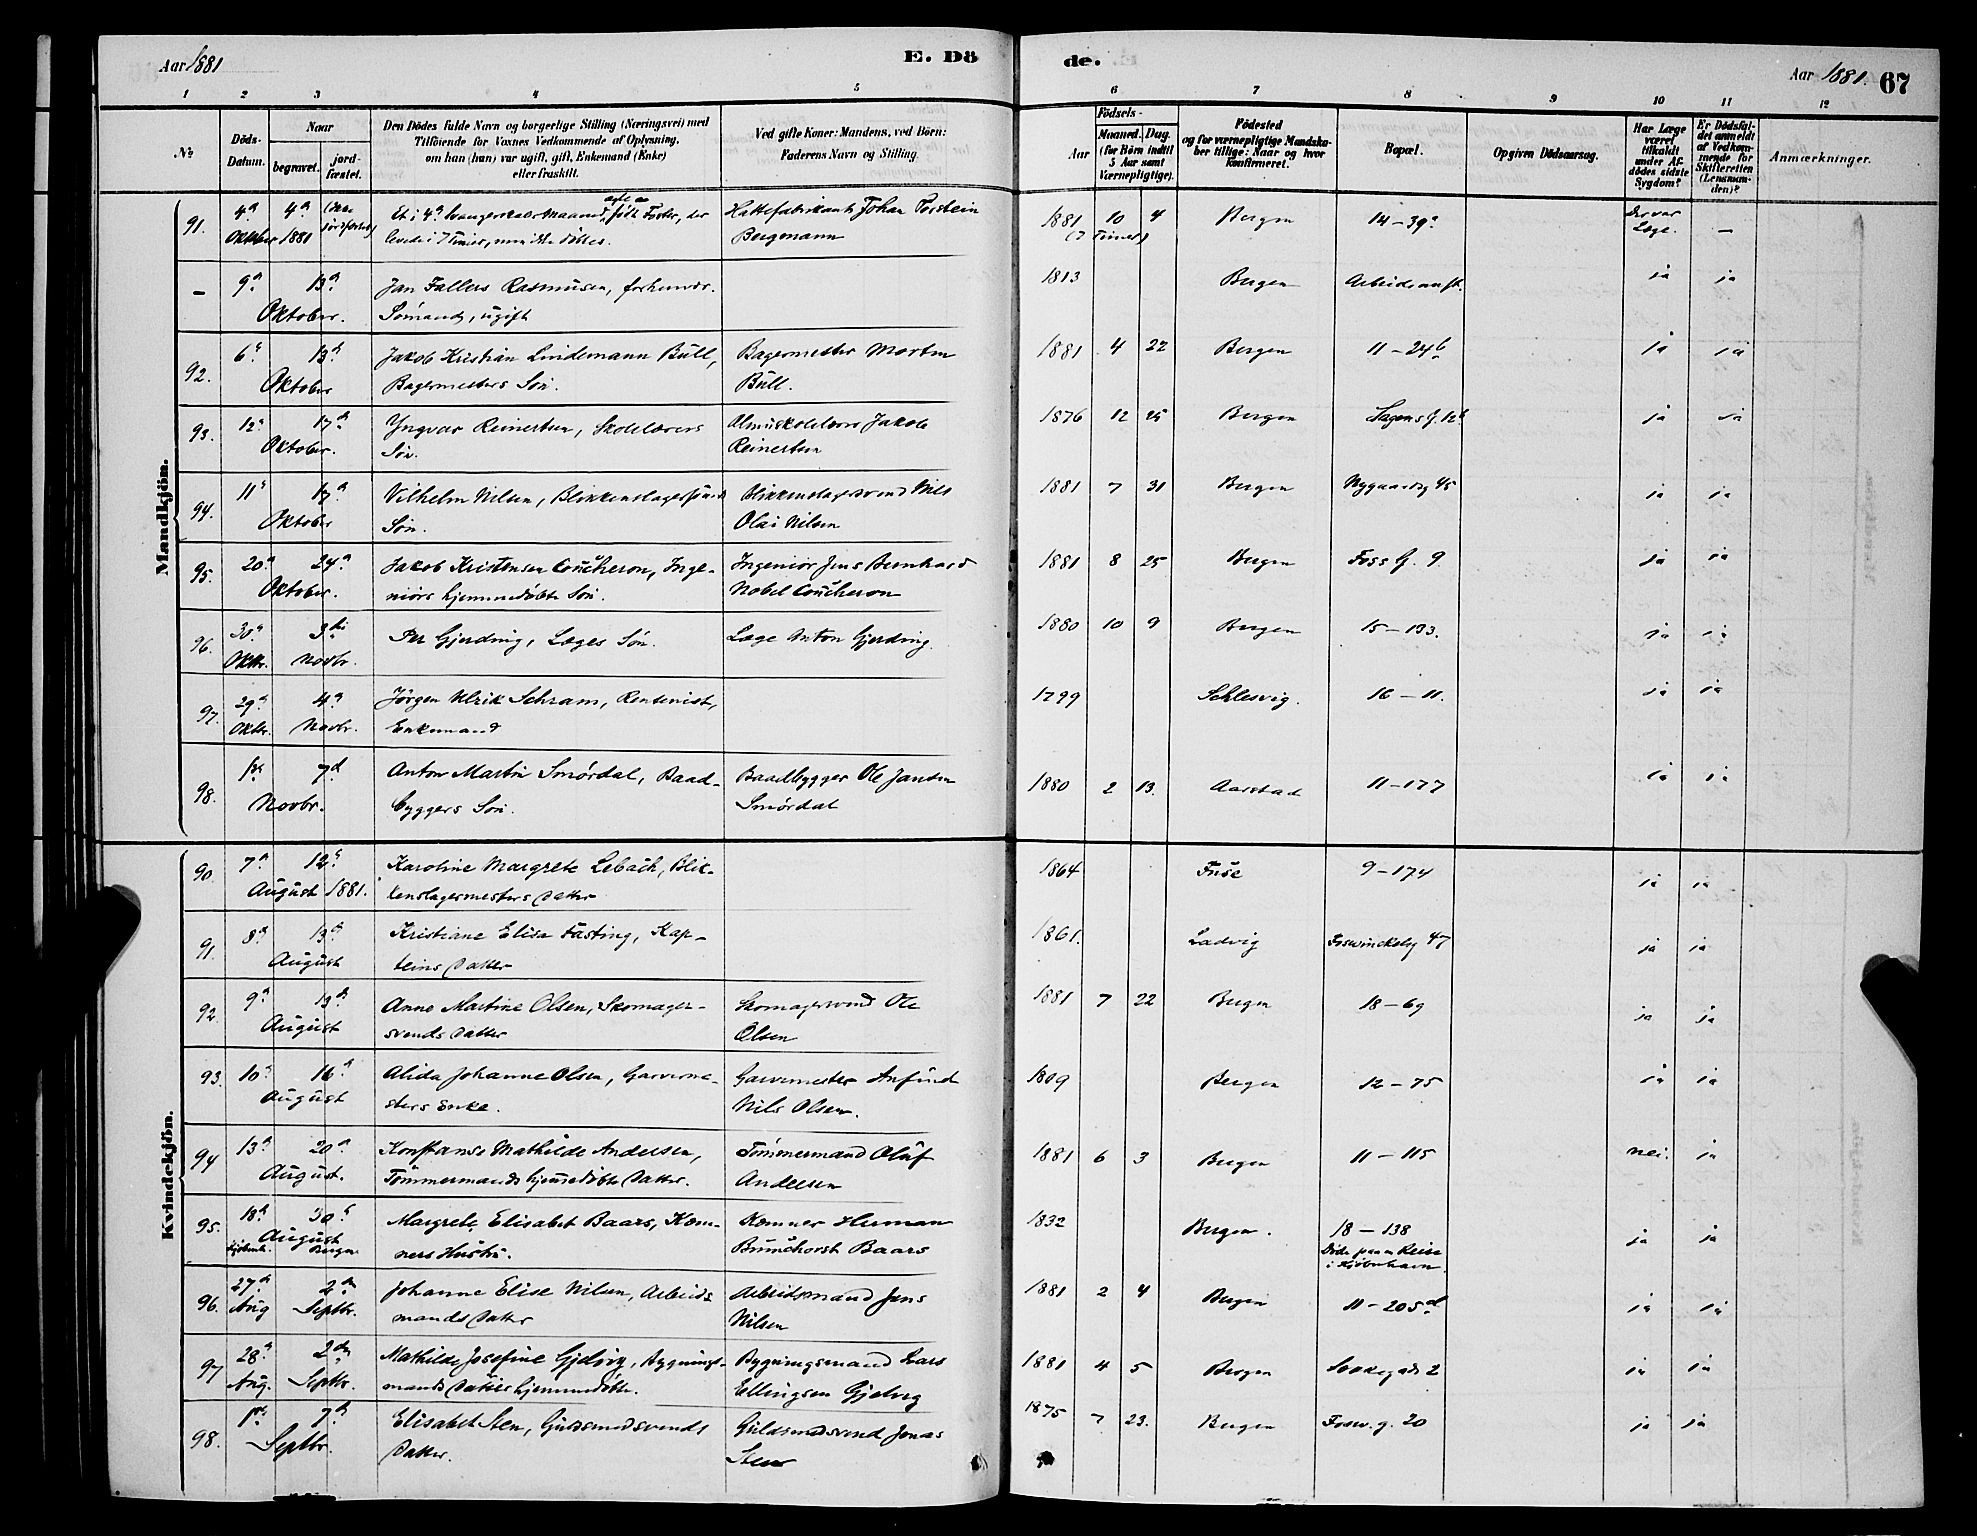 Aar 1881
E. Dö
de.
Aar 1881. 67
1 2 3 4 5 6 7 8 9 10 11 12
No
Döds-Datum.
Naar
begravet.
jordfæstet.
Den Dödes fulde Navn og borgerlige Stilling (Næringsvei) med
Tilföiende for Voxnes Vedkommende af Oplysning,
om han (hun) var ugift, gift, Enkemand (Enke)
eller fraskilt.
Ved gifte Koner: Mandens, ved Börn:
Faderens Navn og Stilling.
Födsels-
Aar
Maaned. Dag.
(for Börn indtil
5 Aar samt
Værnepligtige).
Födested
og for værnepligtige Mandskaber tillige: Naar og hvor
konfirmeret.
Bopæl.
Opgiven Dödsaarsag.
Har Læge
været
tilkaldt
under Afdödes sidste
Sygdom?
Er Dödsfaldet anmeldt
af Vedkommende for
Skifteretten
(Lensmanden)?
Anmærkninger.
Mandkjön.
91. 4de 4de
Oktober 1881
levede i 7 Timer, men ikke döbtes.
Hattefabrikant Johan
Bergmann
1881 10 4 Bergen 14-39a Der var
(7 Timer) Læge. –
– 9de 13de Jan Fallers Rasmusen, forhenvær. 1813 Bergen Arbeidsanst. ja ja
Oktober. Sömand, ugift
92. 6te 13de Jakob Kristian Lindemann Büll, Bagermester Morten 1881 4 22 Bergen 11-24b ja ja
Oktober Bagermesters Sön. Büll.
93. 12te 17de Yngvar Reinertsen, Skolelærers Almuskolelærer Jakob 1876 12 25 Bergen 12b ja ja
Oktober. Sön. Reinertsen
94. 11te 17de Vilhelm Nilsen, Blikkenslagersvends Blikkenslagersvend Nils 1881 7 31 Bergen Nygaardsg 45 ja ja
Oktober Sön. Olai Nilsen
95. 20de 24de Jakob Kristensen Coucheron, Inge- Ingeniör Jens Bernhard 1881 8 25 Bergen Foss G. 9 ja ja
Oktober. niörs hjemmedöbte Sön. Nobel Coucheron
96. 30te 3die Per Gjerding, Læges Sön. Læge Anton Gjerding. 1880 10 9 Bergen 15-133. ja ja
Oktbr. Novbr.
97. 29de 4de Jörgen Ulrik Schram, Rentenist, 1799 Schlesvig. 16-11. ja ja
Oktbr. Novbr. Enkemand
98. 1ste 7de Anton Martin Smördal, Baad- Baadbygger Ole Jansen 1880 2 13. Aarstad 11-177 ja ja
Novbr. byggers Sön. Smördal
Kvindekjön.
90. 7de 12te Karoline Margrete Lebach, Blik- 1864 Fuse 9-174 ja ja
August 1881. kenslagermesters Datter
91. 8de 13de Kristiane Elisa Fasting, Kap- 1861. Ladvig Foswinckelsg 47 ja ja
August teins Datter
92. 9de 13de Anne Martine Olsen, Skomager- Skomagersvend Ole 1881 7 22 Bergen 18-69 ja ja
August svends Datter Olsen
93. 10de 16de Alida Johanne Olsen, Garverme- Garvermester Anfind 1809 Bergen 12-75 ja ja
August sters Enke. Nils Olsen.
94 13de 20de Konstanse Mathilde Andersen, Tömmermand Oluf 1881 6 3 Bergen 11-115 nei. ja
August. Tömmermands hjemmedöbte Datter. Andersen
95. 18de 30te Margrete Elisabet Baars, Kæm- Kæmner Herman 1832 Bergen. 18-138 ja ja
August ners Hustru. Brunchorst Baars Döde paa en Reise
Kjöbenh. Bergen i Kjöbenhavn.
96. 27de 2den Johanne Elise Nilsen, Arbeids- Arbeidsmand Jens 1881 2 4 Bergen 11-205d ja ja
Aug Septbr. mands Datter Nilsen
97 28de 2den Mathilde Josefine Gjelvig, Bygnings- Bygningsmand Lars 1881 4 5 Bergen 2 ja ja
Aug. Septbr. mands Datter hjemmedöbt. Ellingsen Gjelvig
98. 1ste 7de Elisabet Sten, Guldsmedsvends Guldsmedsvend Jonas 1875 7 23. Bergen Fosw. g. 20 ja ja
Septbr. Datter. Sten